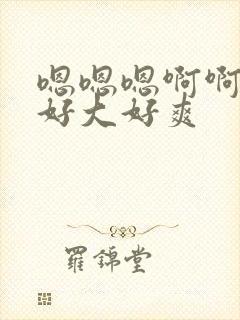 嗯嗯嗯啊啊
好大好爽
羅錦堂